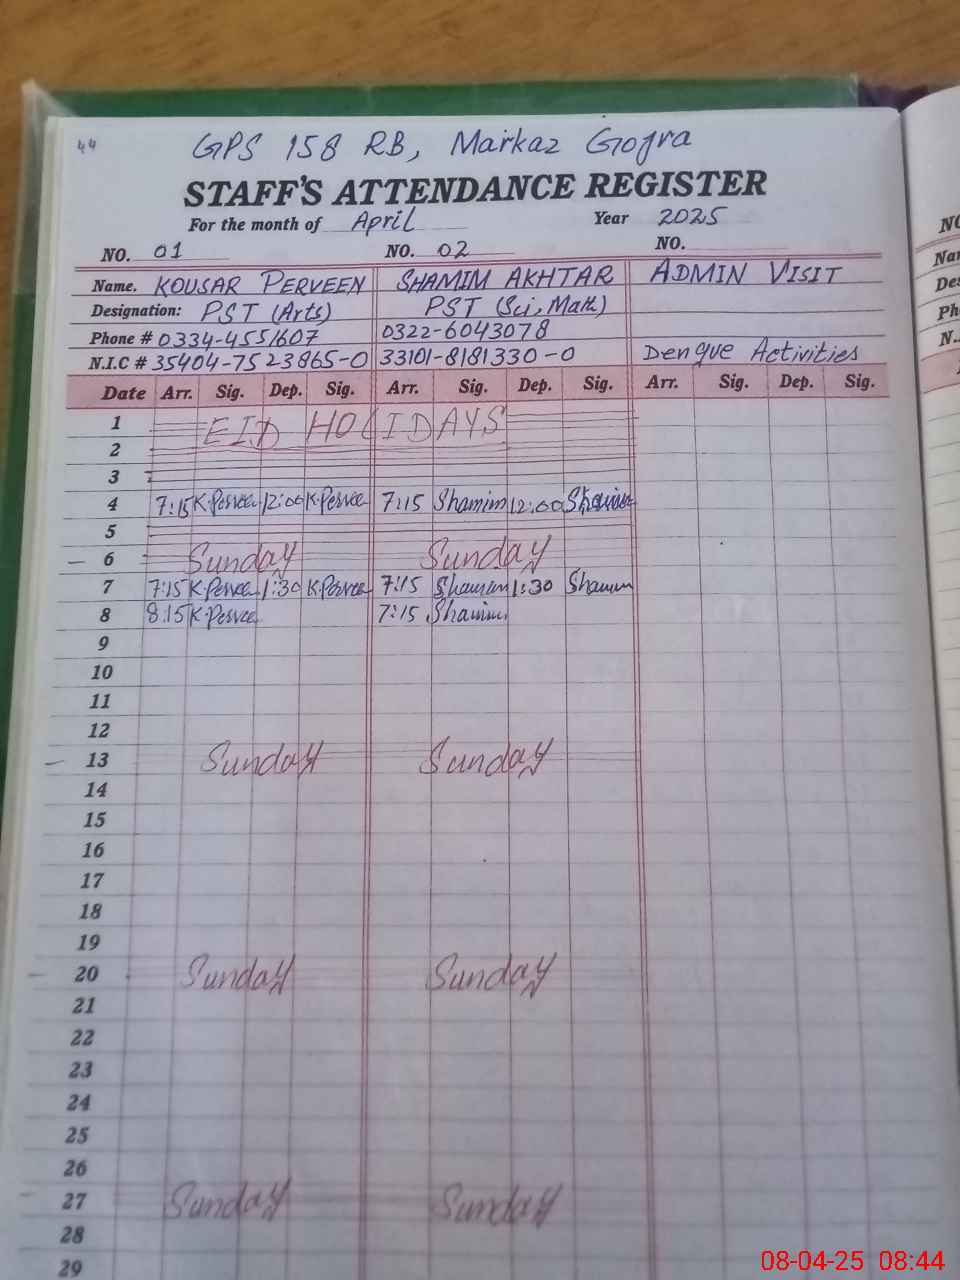 44
GPS 158 RB, Markaz Gojra
STAFF'S ATTENDANCE REGISTER
For the month of April Year 2025
NO. 01 NO. 02 NO.
Name. KOUSAR PERVEEN SHAMIM AKHTAR ADMIN VISIT
Designation: PST (Arts) PST (Sci, Math)
Phone # 0334-4551607 0322-6043078
N.I.C # 35404-7523865-0 33101-8181330-0 Dengue Activities
Date Arr. Sig. Dep. Sig. Arr. Sig. Dep. Sig. Arr. Sig. Dep. Sig.
1 EID HOLIDAYS
2
3
4 7:15 K.Pervee 12:00 K.Pervee 7:15 Shamim 12:00 Shamim
5
6 Sunday Sunday
7 7:15 K.Pervee 1:30 K.Pervee 7:15 Shamim 1:30 Shamim
8 8:15 K.Pervee 7:15 Shamim
9
10
11
12
13 Sunday Sunday
14
15
16
17
18
19
20 Sunday Sunday
21
22
23
24
25
26
27 Sunday Sunday
28
29
NO
Nar
Des
Ph
N.
08-04-25 08:44